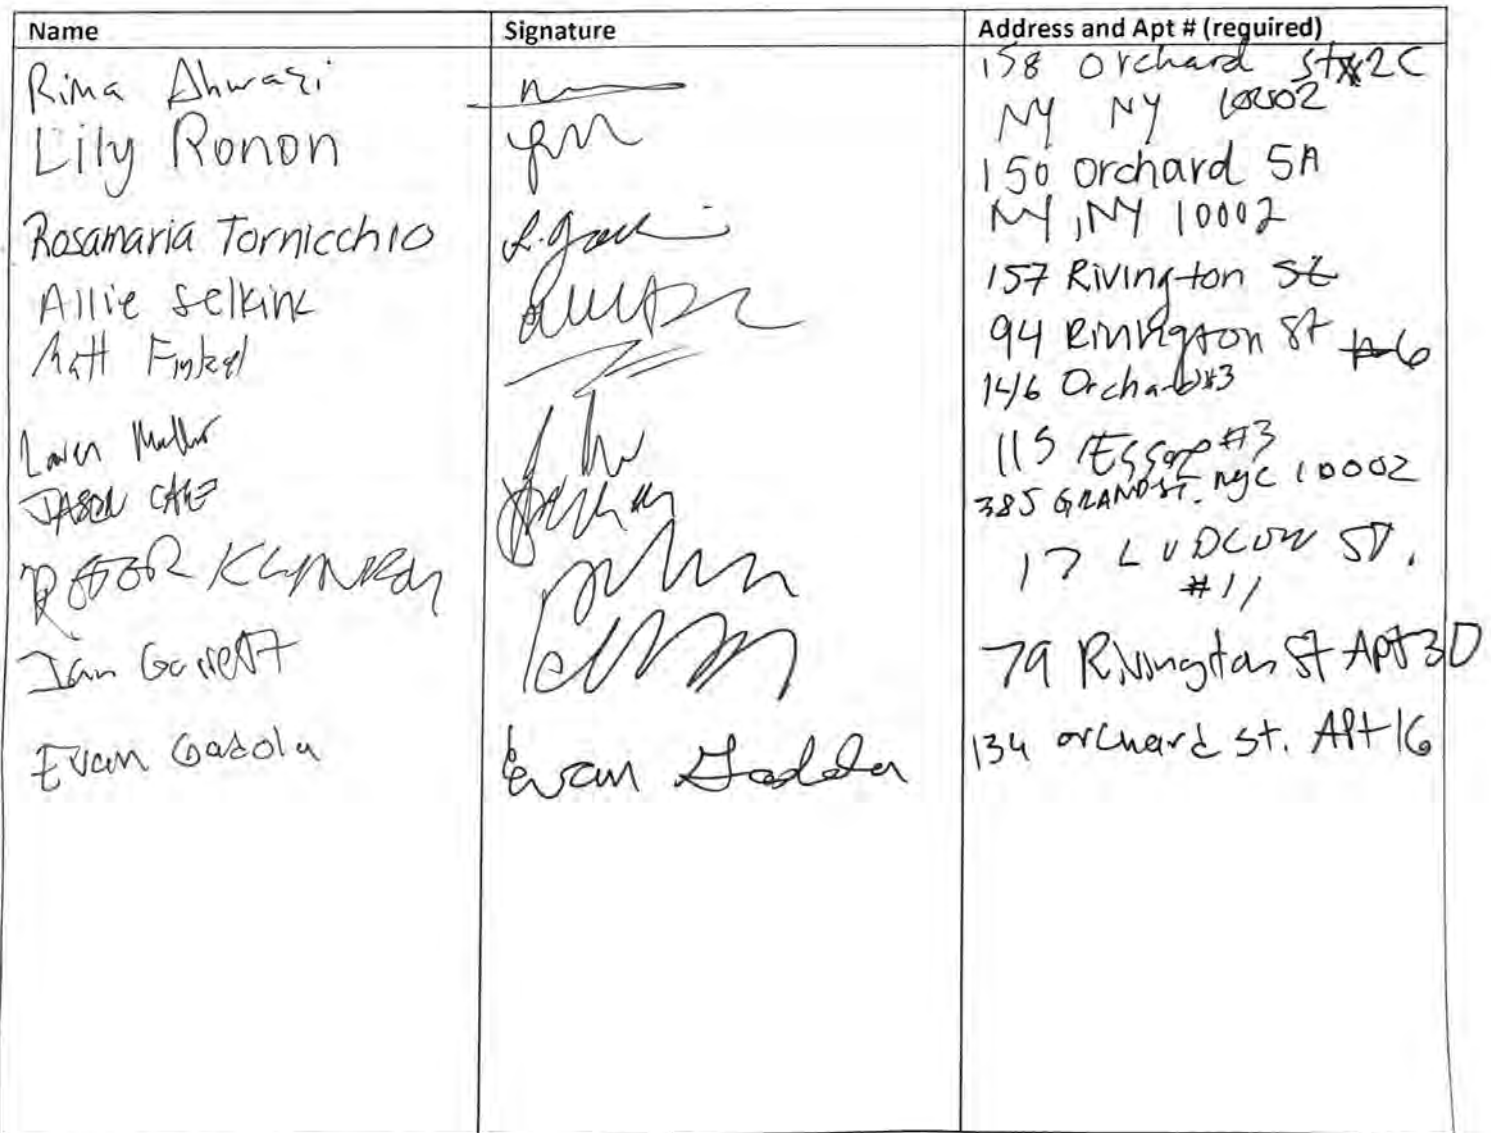 Name Signature Address and Apt # (required)
Rima Ahwazi 158 Orchard St #2C
NY NY 10002
Lily Ronon 150 Orchard 5A
NY, NY 10002
Rosamaria Tornicchio 157 Rivington St
Allie Selkirk 94 Rivington St #6
Matt Finkel 146 Orchard #3
Lauren 115 Essex #3
JASON 385 GRAND ST. NYC 10002
PETER 17 LUDLOW ST.
#11
Ian Garrett 79 Rivington St Apt 3D
Evan Gadola Evan Gadola 134 orchard st. APt 16